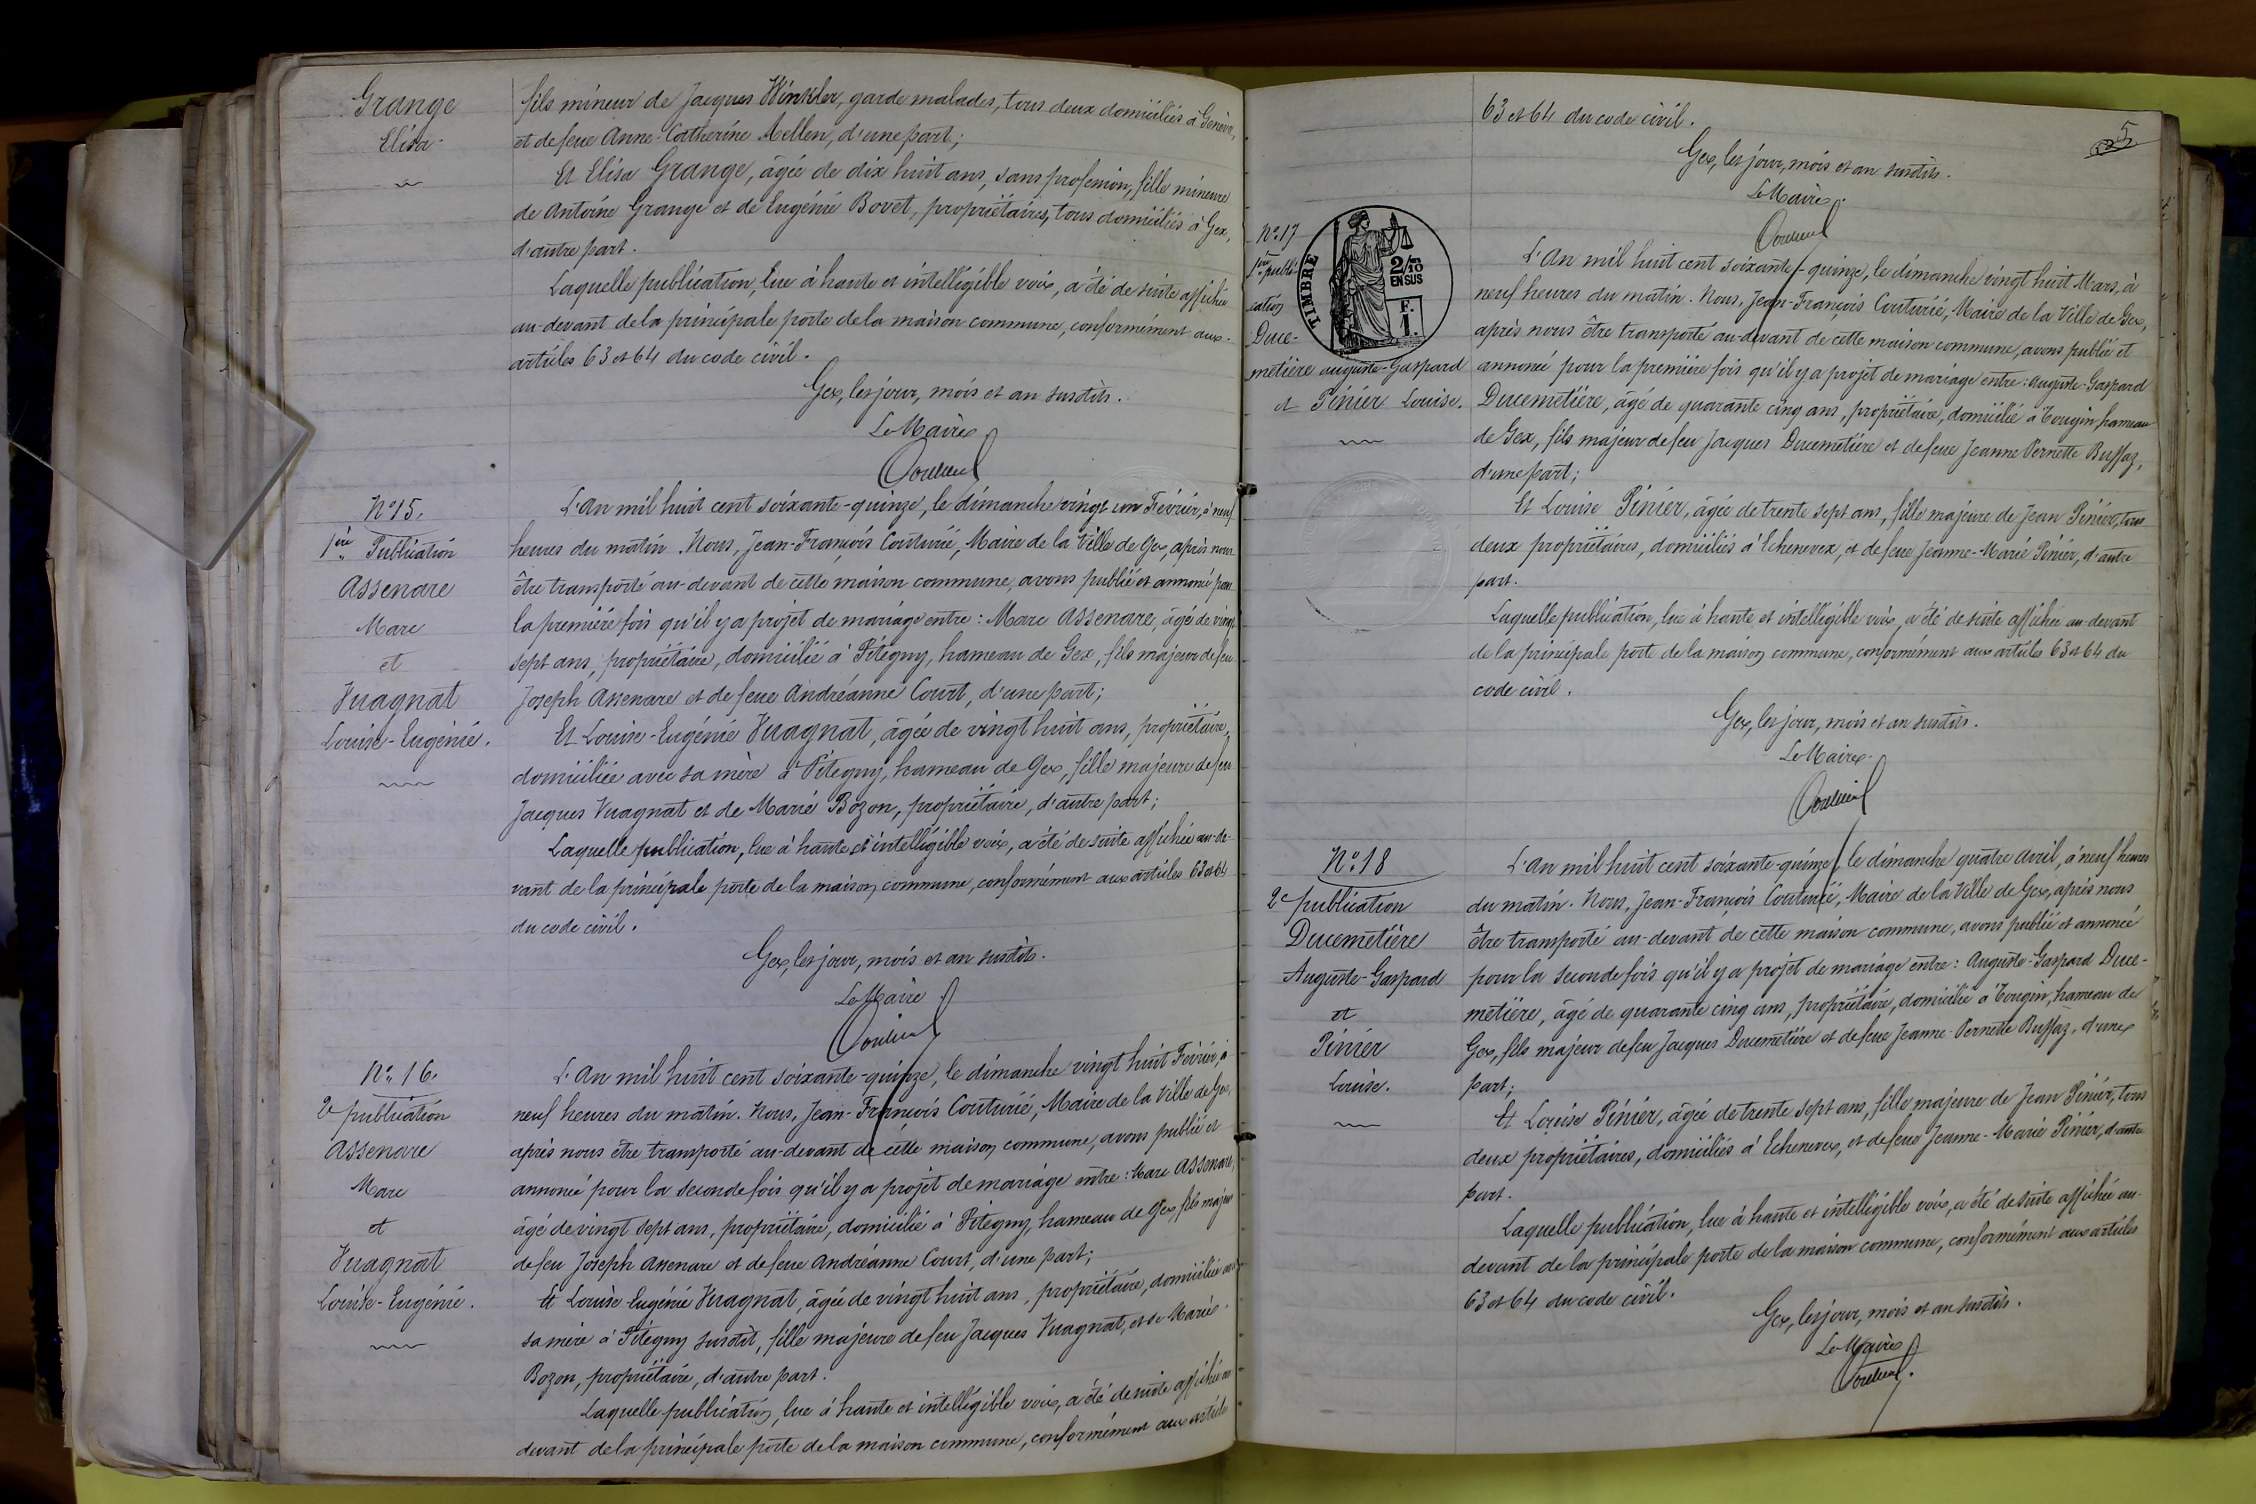 Grange
Elisa
fils mineur de Jacques Winkler, garde malades, tous deux domiciliés à Genève,
et de feue Anne-Catherine Aellen, d'une part;
Et Elisa Grange, âgée de dix huit ans, sans profession, fille mineure
de Antoine Grange et de Eugénie Bovet, propriétaires, tous domiciliés à Gex,
d'autre part.
Laquelle publication, lue à haute et intelligible voix, a été de suite affichée
au-devant de la principale porte de la maison commune, conformément aux
articles 63 et 64 du code civil.
Gex, les jour, mois et an susdits.
Le Maire
N° 15.
1ère Publication
Assenare
Marc
et
Vuagnat
Louise-Eugénie.
L'An mil huit cent soixante-quinze, le dimanche vingt un Février, à neuf
heures du matin. Nous, Jean-François Couturié, Maire de la Ville de Gex, après nous
être transporté au-devant de cette maison commune, avons publié et annoncé pour
la première fois qu'il y a projet de mariage entre: Marc Assenare, âgé de vingt
sept ans, propriétaire, domicilié à Pitégny, hameau de Gex, fils majeur de feu
Joseph Assenare et de feue Andréanne Court, d'une part;
Et Louise-Eugénie Vuagnat, âgée de vingt huit ans, propriétaire,
domiciliée avec sa mère à Pitegny, hameau de Gex, fille majeure de feu
Jacques Vuagnat et de Marie Bozon, propriétaire, d'autre part;
Laquelle publication, lue à haute et intelligible voix, a été de suite affichée au-de-
vant de la principale porte de la maison commune, conformément aux articles 63 et 64
du code civil.
Gex, les jour, mois et an susdits.
Le Maire
N° 16.
2e publication
Assenare
Marc
et
Vuagnat
Louise-Eugénie.
L'An mil huit cent soixante-quinze, le dimanche vingt huit Février, à
neuf heures du matin. Nous, Jean-François Couturié, Maire de la Ville de Gex,
après nous être transporté au-devant de cette maison commune, avons publié et
annoncé pour la seconde fois qu'il y a projet de mariage entre: Marc Assenare,
âgé de vingt sept ans, propriétaire, domicilié à Pitegny, hameau de Gex, fils majeur
de feu Joseph Assenare et de feue Andréanne Court, d'une part;
Et Louise-Eugénie Vuagnat, âgée de vingt huit ans, propriétaire, domiciliée avec
sa mère à Pitegny susdit, fille majeure de feu Jacques Vuagnat, et de Marie
Bozon, propriétaire, d'autre part.
Laquelle publication, lue à haute et intelligible voix, a été de suite affichée au
devant de la principale porte de la maison commune, conformément aux articles
63 et 64 du code civil.
5
Gex, les jour, mois et an susdits.
Le Maire.
N° 17
1ère publi-
cation
Duce-
métière Auguste-Gaspard
et Pinier Louise.
TIMBRE
2/10
EN SUS
F.
1.
L'An mil huit cent soixante-quinze, le dimanche vingt huit Mars, à
neuf heures du matin. Nous, Jean-François Couturié, Maire de la Ville de Gex,
après nous être transporté au-devant de cette maison commune, avons publié et
annoncé pour la première fois qu'il y a projet de mariage entre: Auguste-Gaspard
Ducemétière, âgé de quarante cinq ans, propriétaire, domicilié à Tougin, hameau
de Gex, fils majeur de feu Jacques Ducemétière et de feue Jeanne Pernette Buffaz,
d'une part;
Et Louise Pinier, âgée de trente sept ans, fille majeure de Jean Pinier, tous
deux propriétaires, domiciliés à Echenevex, et de feue Jeanne-Marie Pinier, d'autre
part.
Laquelle publication, lue à haute et intelligible voix, a été de suite affichée au-devant
de la principale porte de la maison commune, conformément aux articles 63 et 64 du
code civil.
Gex, les jour, mois et an susdits.
Le Maire
N° 18
2e publication
Ducemétière
Auguste-Gaspard
et
Pinier
Louise.
L'An mil huit cent soixante-quinze, le dimanche quatre Avril, à neuf heures
du matin. Nous, Jean-François Couturié, Maire de la Ville de Gex, après nous
être transporté au-devant de cette maison commune, avons publié et annoncé
pour la seconde fois qu'il y a projet de mariage entre: Auguste-Gaspard Duce-
métière, âgé de quarante cinq ans, propriétaire, domicilié à Tougin, hameau de
Gex, fils majeur de feu Jacques Ducemétière et de feue Jeanne-Pernette Buffaz, d'une
part;
Et Louise Pinier, âgée de trente sept ans, fille majeure de Jean Pinier, tous
deux propriétaires, domiciliés à Echenevex, et de feue Jeanne-Marie Pinier, d'autre
part.
Laquelle publication, lue à haute et intelligible voix, a été de suite affichée au-
devant de la principale porte de la maison commune, conformément aux articles
63 et 64 du code civil.
Gex, les jour, mois et an susdits.
Le Maire